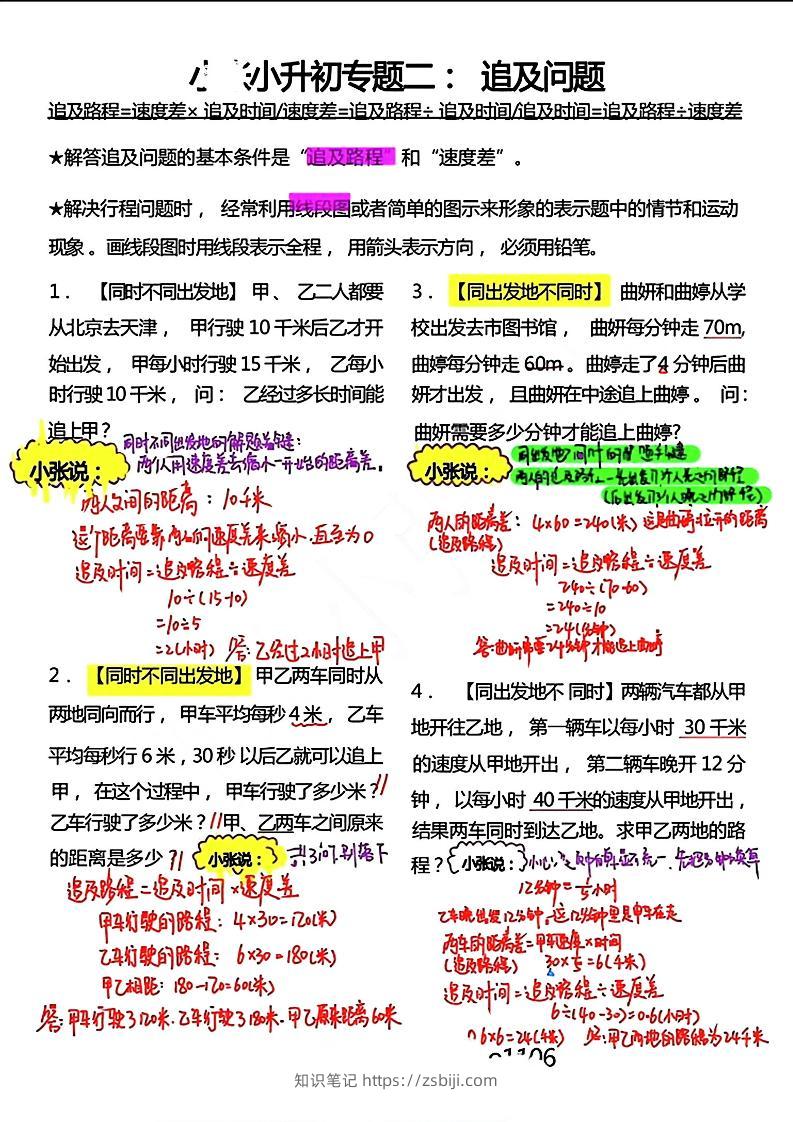 小升初专题二： 追及问题
追及路程=速度差× 追及时间/速度差=追及路程÷ 追及时间/追及时间=追及路程÷速度差
★解答追及问题的基本条件是“追及路程”和“速度差”。
★解决行程问题时， 经常利用线段图或者简单的图示来形象的表示题中的情节和运动
现象 。画线段图时用线段表示全程， 用箭头表示方向， 必须用铅笔。
1． 【同时不同出发地】 甲、 乙二人都要
从北京去天津， 甲行驶 10 千米后乙才开
始出发， 甲每小时行驶 15 千米， 乙每小
时行驶 10 千米， 问： 乙经过多长时间能
追上甲？
同时不同出发地的解题关键：
小张说：
两人用速度差去缩小一开始的距离差。
两人之间的距离：10千米
这个距离要靠两人间速度差来缩小.直至为0
追及时间=追及路程÷速度差
10÷(15-10)
=10÷5
=2(小时) 答：乙经过2小时追上甲
2． 【同时不同出发地】 甲乙两车同时从
两地同向而行， 甲车平均每秒 4 米， 乙车
平均每秒行 6 米，30 秒 以后乙就可以追上
甲， 在这个过程中， 甲车行驶了多少米？
乙车行驶了多少米？ 甲、乙两车之间原来
的距离是多少？ 小张说： 共3个问.别落下
追及路程=追及时间×速度差
甲车行驶的路程：4×30=120(米)
乙车行驶的路程：6×30=180(米)
甲乙相距：180-120=60(米)
答：甲车行驶了120米.乙车行驶了180米.甲乙原来距离60米
3． 【同出发地不同时】 曲妍和曲婷从学
校出发去市图书馆， 曲妍每分钟走 70m,
曲婷每分钟走 60m 。曲婷走了4 分钟后曲
妍才出发， 且曲妍在中途追上曲婷 。 问：
曲妍需要多少分钟才能追上曲婷?
小张说：
两人的距离差：4×60=240(米)
(追及路程)
追及时间=追及路程÷速度差
240÷(70-60)
=240÷10
=24(分钟)
答:曲妍需要24分钟才能追上曲婷
4． 【同出发地不 同时】两辆汽车都从甲
地开往乙地， 第一辆车以每小时 30 千米
的速度从甲地开出， 第二辆车晚开 12 分
钟， 以每小时 40 千米的速度从甲地开出，
结果两车同时到达乙地。求甲乙两地的路
程？ 小张说：
12分钟=1/5小时
乙车晚出发12分钟,这12分钟里是甲车在走
两车的距离差=甲车速度×时间
(追及路程) 30×1/5=6(千米)
追及时间=追及路程÷速度差
6÷(40-30)=0.6(小时)
答:甲乙两地的路程为24千米
知识笔记 https://zsbiji.com